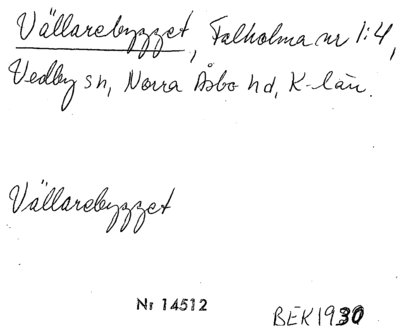 Vällarebygget, Falholma nr 1:4,
Vedby sn, Norra Åsbo hd, K-län.
Vällarebygget
Nr 14512
BEK1930